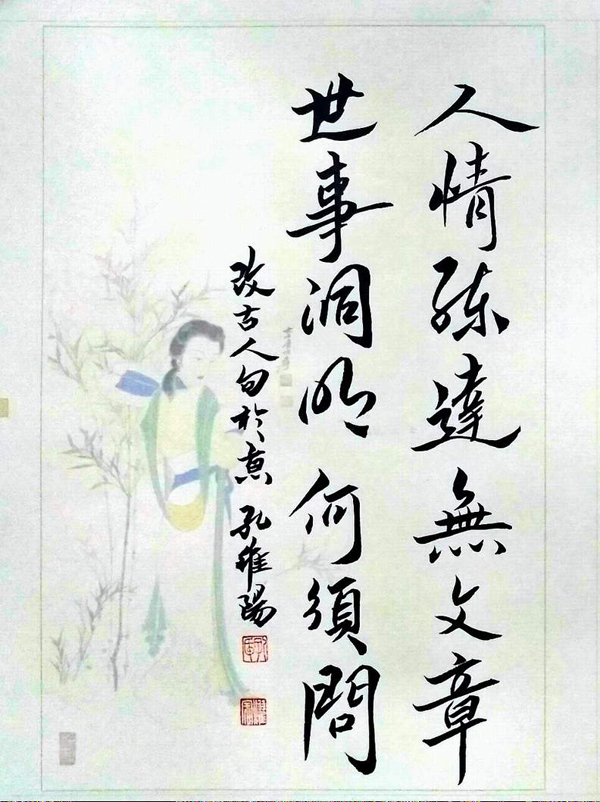 人情練達無文章
世事洞明何須問
改古人句於京 孔維陽